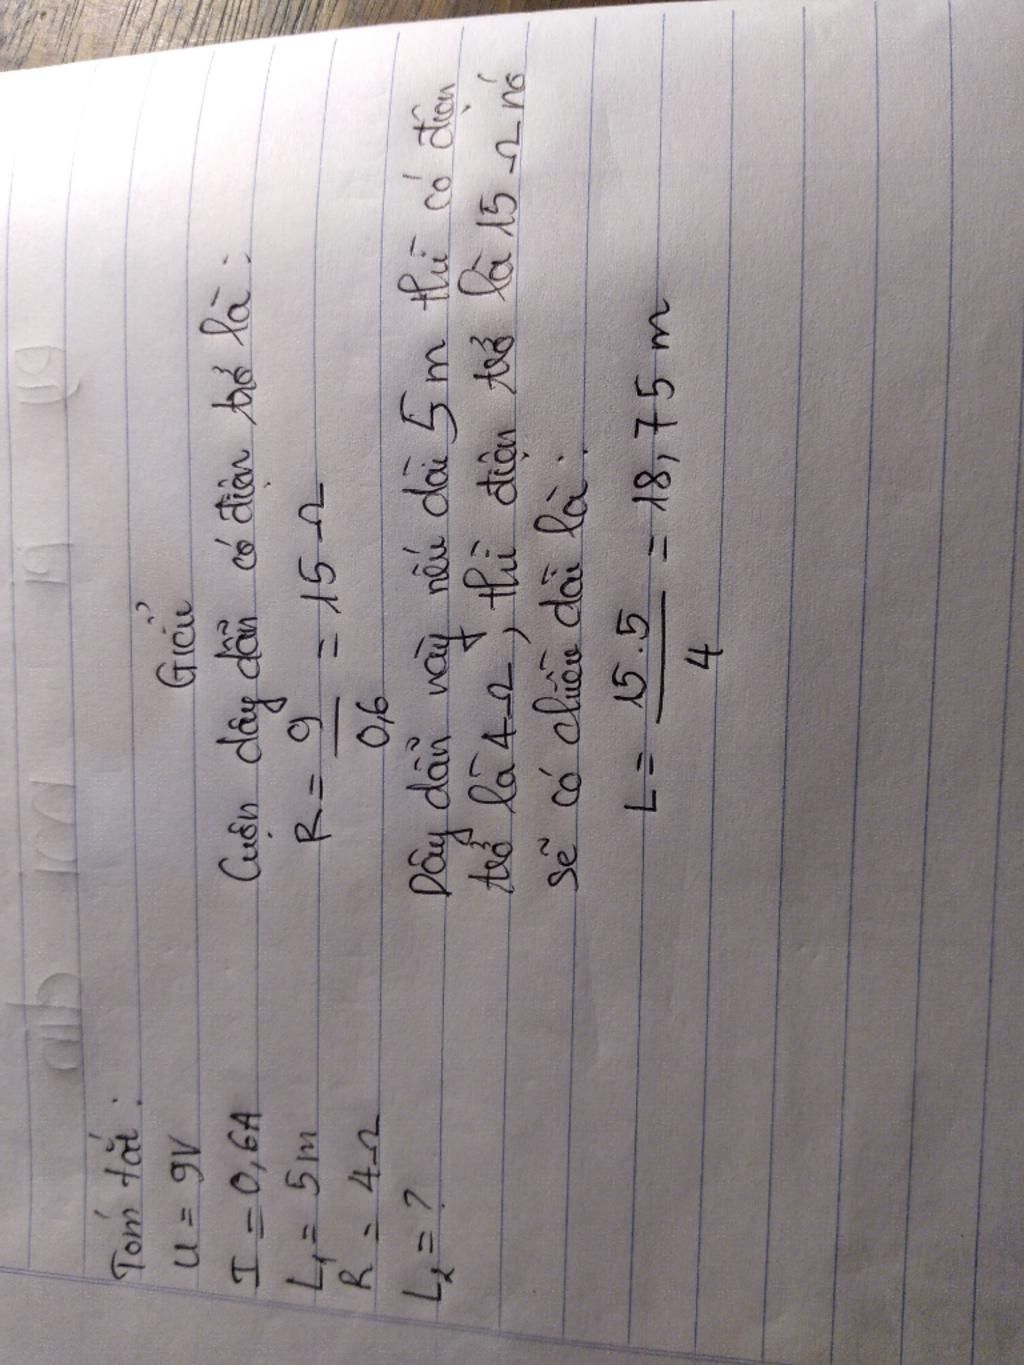 Tóm tắt:
U = 9V
I = 0,6A
L₁ = 5m
R = 4Ω
L₂ = ?
Giải
Cuộn dây dẫn có điện trở là:
R = 9/0,6 = 15 Ω
Dây dẫn này nếu dài 5m thì có điện
trở là 4Ω, thì điện trở là 15 Ω nó
sẽ có chiều dài là:
L = 15.5/4 = 18,75 m